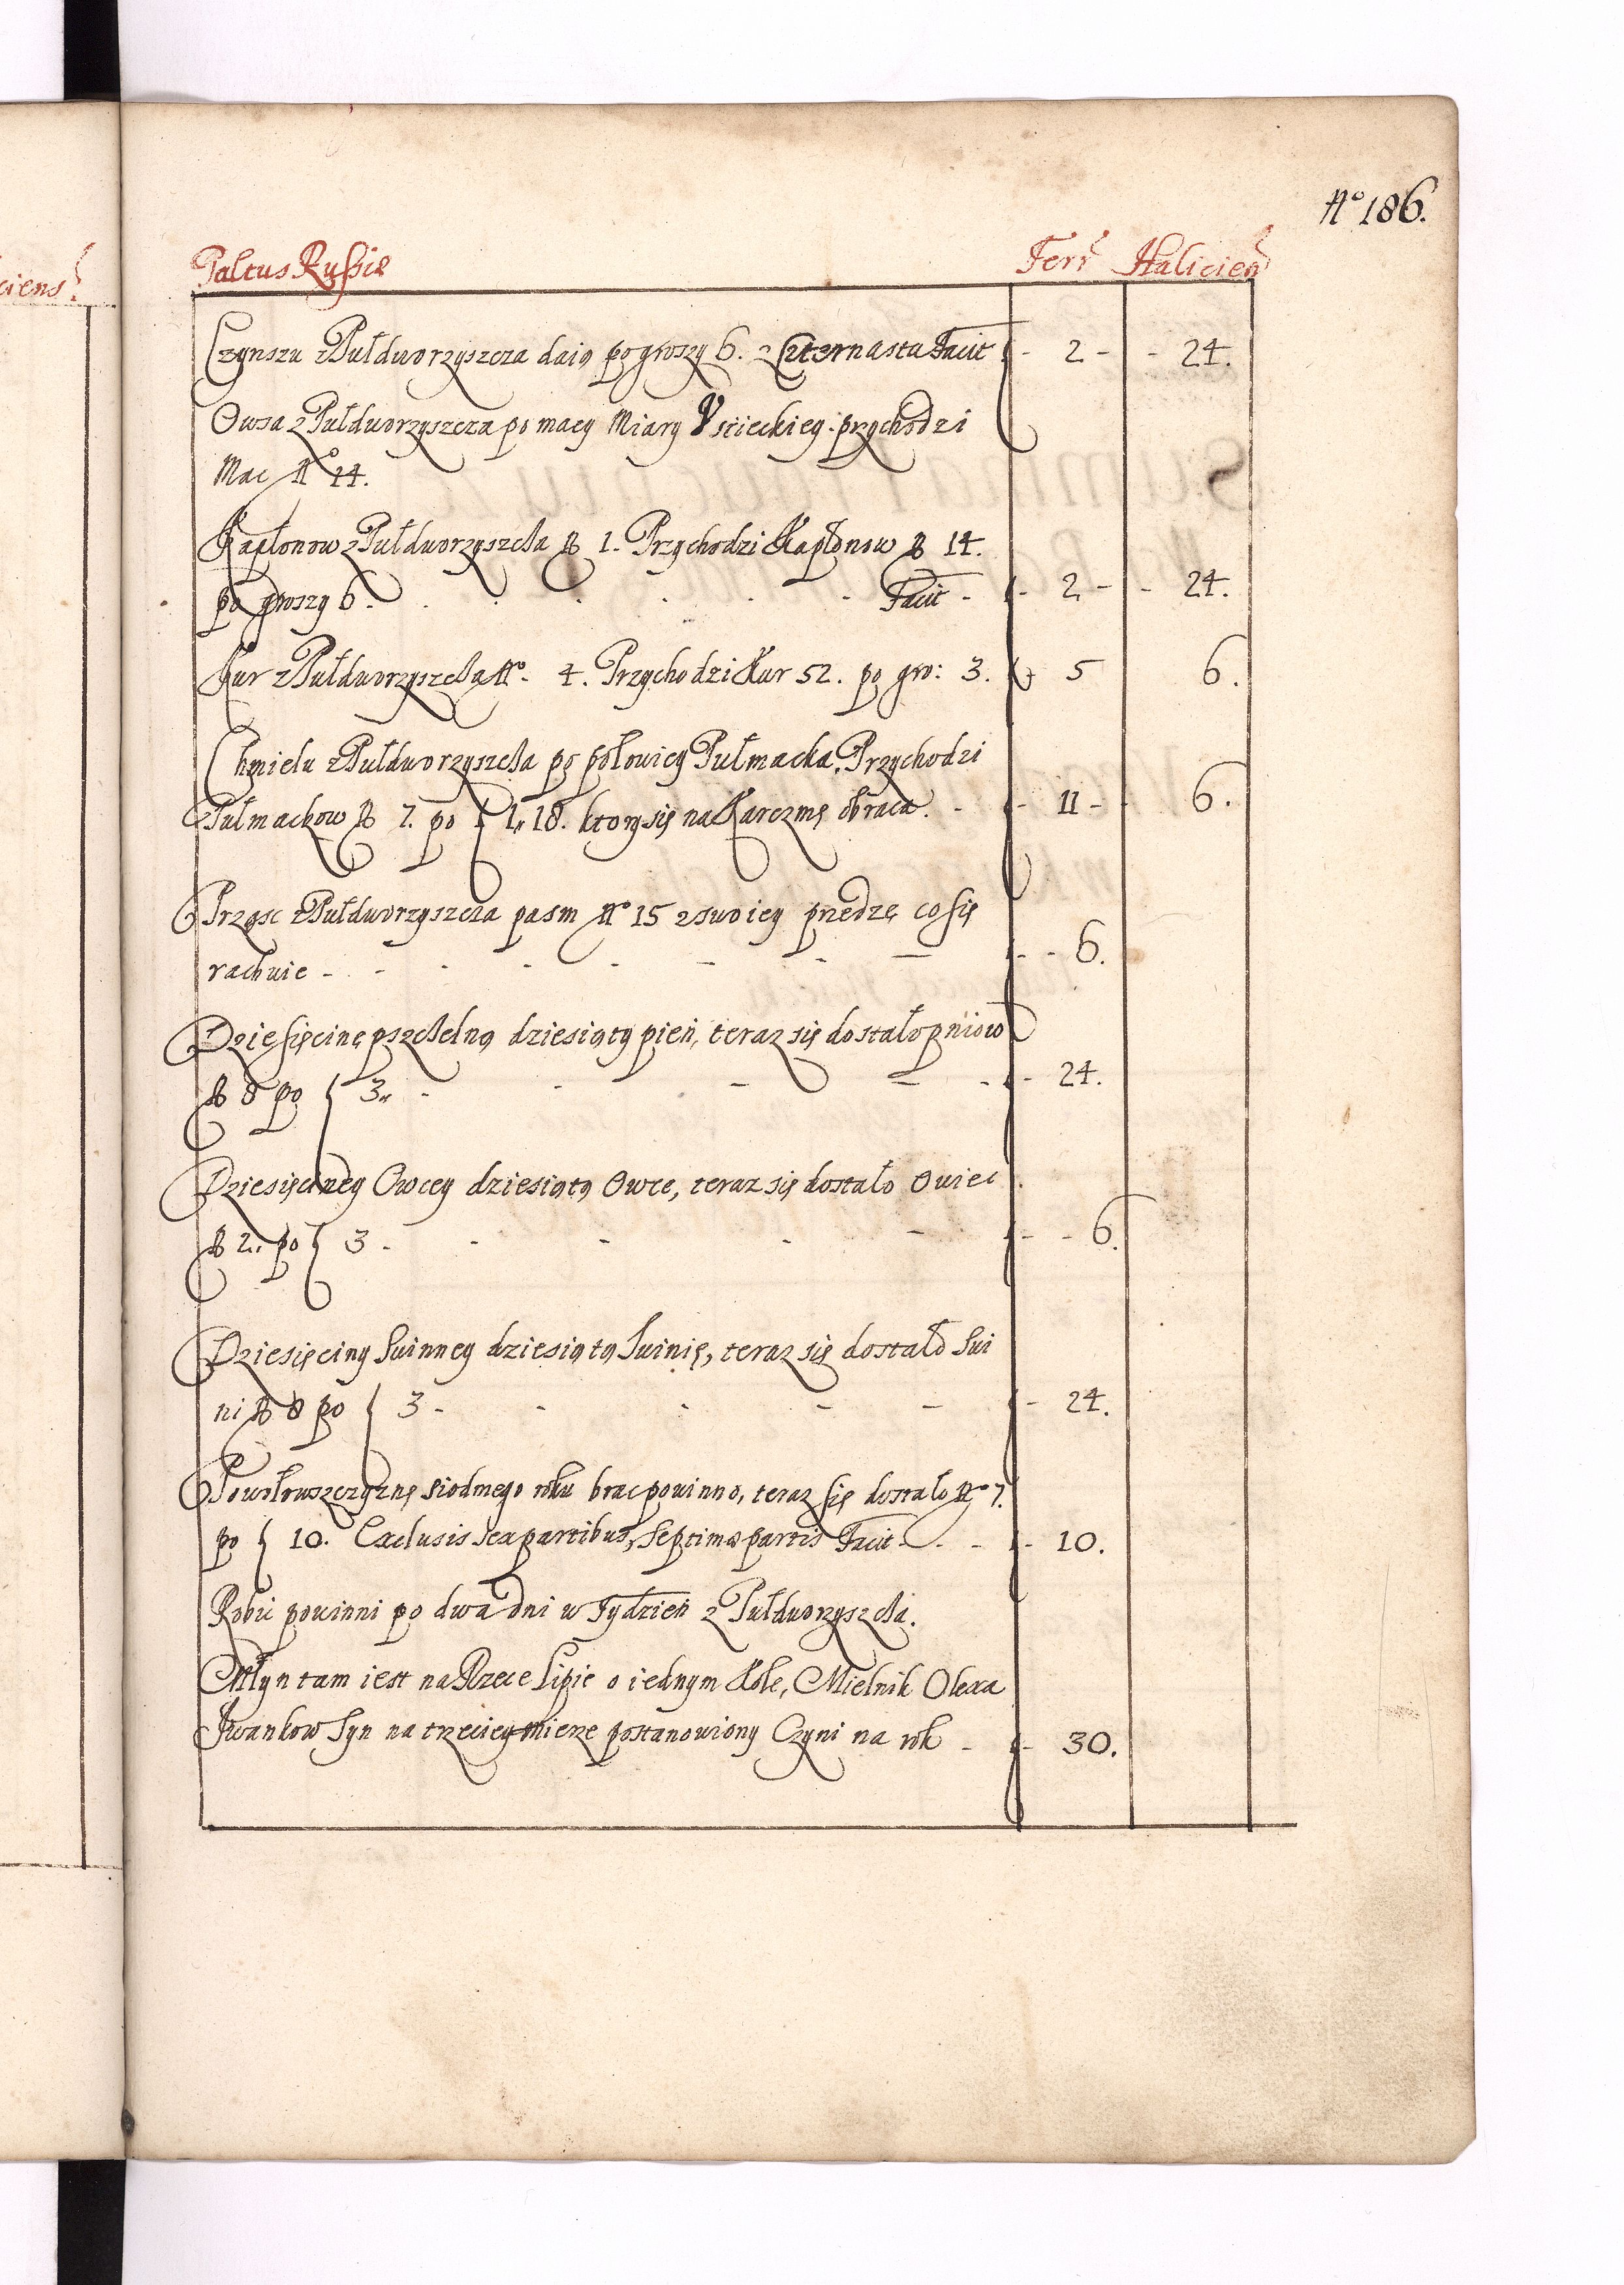 Nº 186.
ciens
Paltus Russiæ Terr Haliciens
Czynszu z Pułdworzyszcza daią po groszy 6. z Czternastu Facit - 2 - - 24.
Owsa z Pułdworzyszcza po macy Miary Vscieckiey przychodzi
Mac Nº 14.
Kapłonow z Pułdworzyszcza Nº 1. Przychodzi Kapłonow Nº 14.
po groszy 6. Facit - 2 - - 24.
Kur z Pułdworzyszcza Nº 4. Przychodzi Kur 52. po gro: 3. 5 6.
Chmielu z Pułdworzyszcza po połowicy Pułmacka, Przychodzi
Pułmackow Nº 7. po f 1,, 18. ktory się na Karczmę obraca. - 11 - 6.
Prząsc z Pułdworzyszcza pasm Nº 15 z swoiey przedze co się
rachuie - 6.
Dziesięcinę pszczelną dziesiąty pień, teraz się dostało pniow
Nº 8 po f 3,, - 24.
Dziesięciney Owcey dziesiątą Owce, teraz się dostało Owiec
Nº 2,, po f 3 - 6.
Dziesięciny Swinney dziesiątą Swinię, teraz się dostało Swi
ni Nº 8 po f 3 - 24.
Powołowszczyznę siodmego roku brac powinno, teraz się dostało Nº 7.
po f 10. Exclusis sex partibus, septimæ partis Facit - 10.
Robic powinni po dwa dni w Tydzień z Pułdworzyszcza.
Młyn tam iest na Rzece Lipie o iednym Kole, Mielnik Olexa
Iwankow Syn na trzeciey mierze postanowiony Czyni na rok - 30.